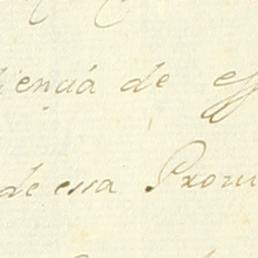 iencia de es
de essa Provi